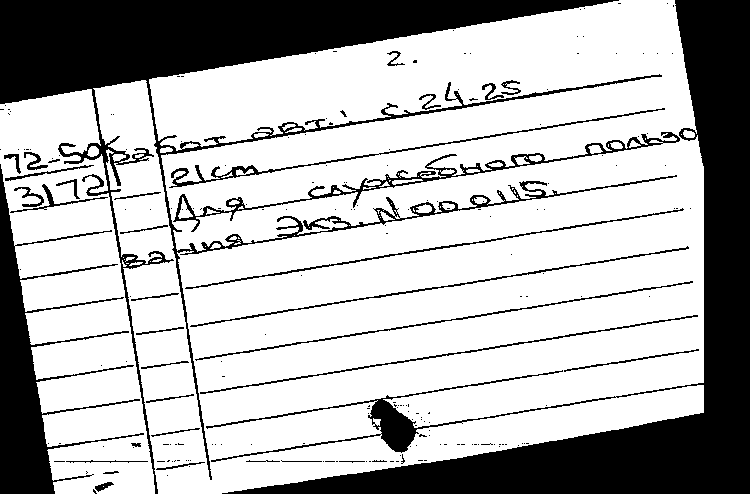 2.
72-50к
3172
работ авт.: с. 24-25
21см.
Для служебного пользо
вания. Экз. N 000115.